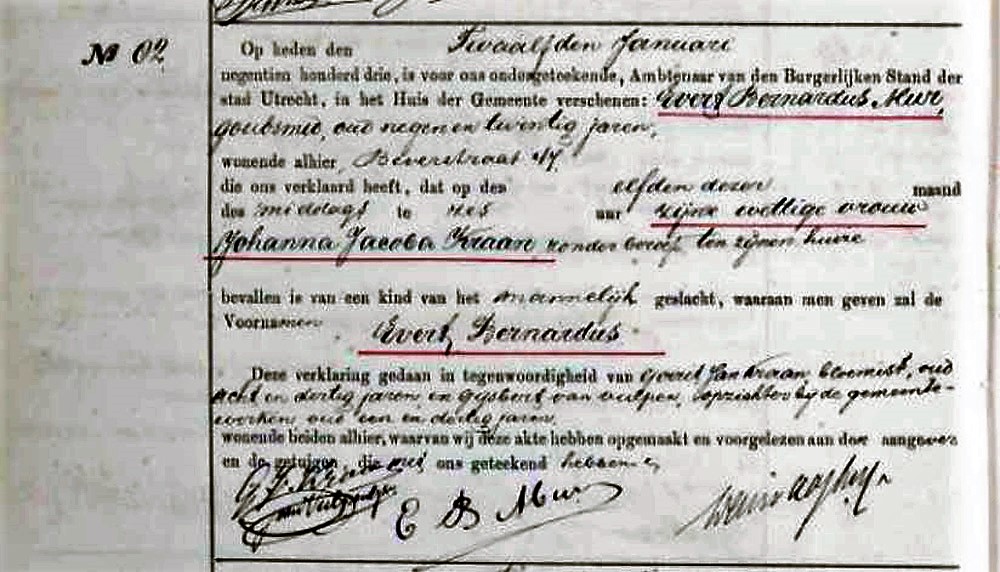 № 02
Op heden den Twaalfden Januari
negentien honderd drie, is voor ons ondergeteekende, Ambtenaar van den Burgerlijken Stand der
stad Utrecht, in het Huis der Gemeente verschenen: Evert Bernardus Mur,
goudsmid, oud negen en twintig jaren,
wonende alhier, Beverstraat
die ons verklaard heeft, dat op den elfden dezer maand
des middags te zes uur zijne wettige vrouw
Johanna Jacoba Kraan zonder beroep ten zijnen huize
bevallen is van een kind van het mannelijk geslacht, waaraan men geven zal de
Voornamen Evert Bernardus
Deze verklaring gedaan in tegenwoordigheid van Gerrit Jan Kraan bloemist, oud
acht en dertig jaren en Gijsbert van Vulpen, opzichter bij de gemeente-
werken oud een en dertig jaren,
wonende beiden alhier, waarvan wij deze akte hebben opgemaakt en voorgelezen aan den aangever
en de getuigen, die met ons geteekend hebben
G. J. Kraan
E B Mur